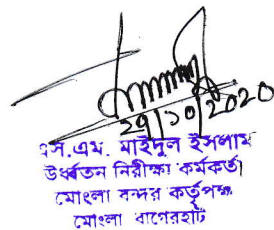 29/10/2020
এস.এম. মাইদুল ইসলাম
উর্ধ্বতন নিরীক্ষা কর্মকর্তা
মোংলা বন্দর কর্তৃপক্ষ
মোংলা বাগেরহাট